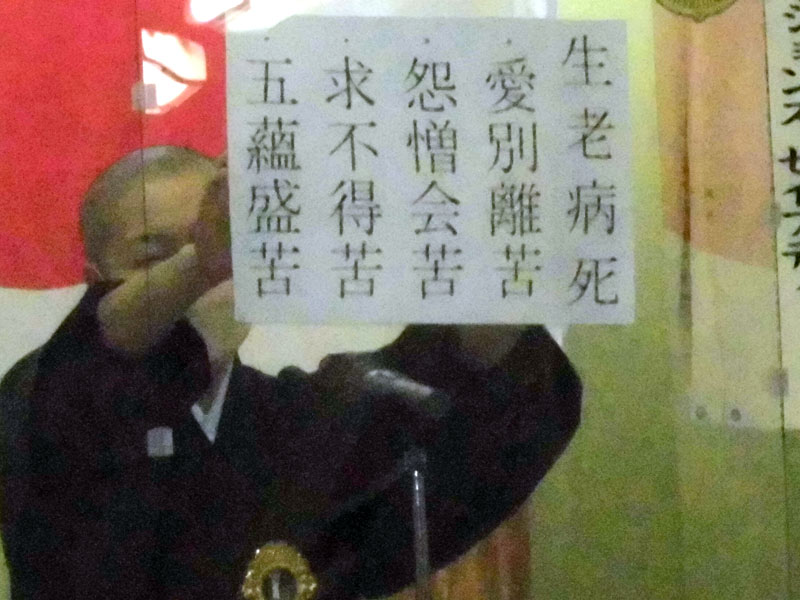 生老病死
・愛別離苦
・怨憎会苦
・求不得苦
・五蘊盛苦